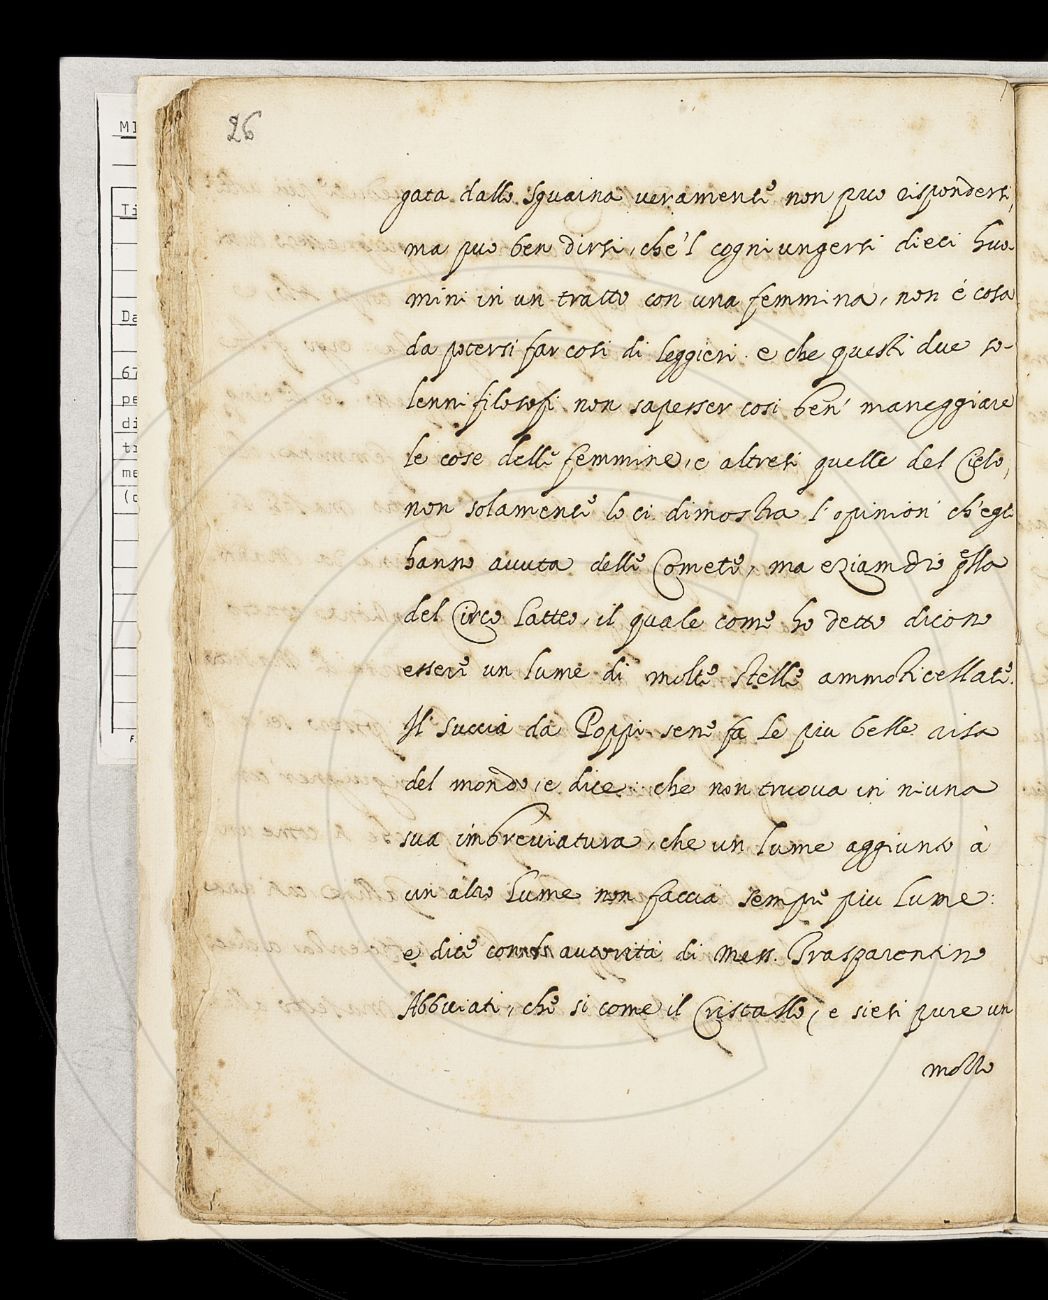 26
gata dalla Sguaina veramente non puo rispondersi,
ma puo ben dirsi, che'l cogniungersi dieci huo
mini in un tratto con una femmina, non é cosa
da potersi far cosi di leggieri. e che questi due so-
lenni filosofi non sapesser cosi ben' maneggiare
le cose delle femmine, e altresi quelle del Cielo,
non solamente lo ci dimostra l'opinion ch'egli
hanno avuta delle Comete, ma eziamdio qlla
del Circo Latteo, il quale come ho detto dicono
essere un lume di molte stelle ammonticellate.
Il Succia da Poppi sene fa le piu belle risa
del mondo, e dice: che non truova in niuna
sua imbreviatura, che un lume aggiunto à
un altro lume non faccia sempre piu lume:
e dice con autorità di Mess. Trasparentino
Abbviati, che si come il Cristallo, e siesi pure un
molto
MI
Ti
Da
67
pe
di
ti
me